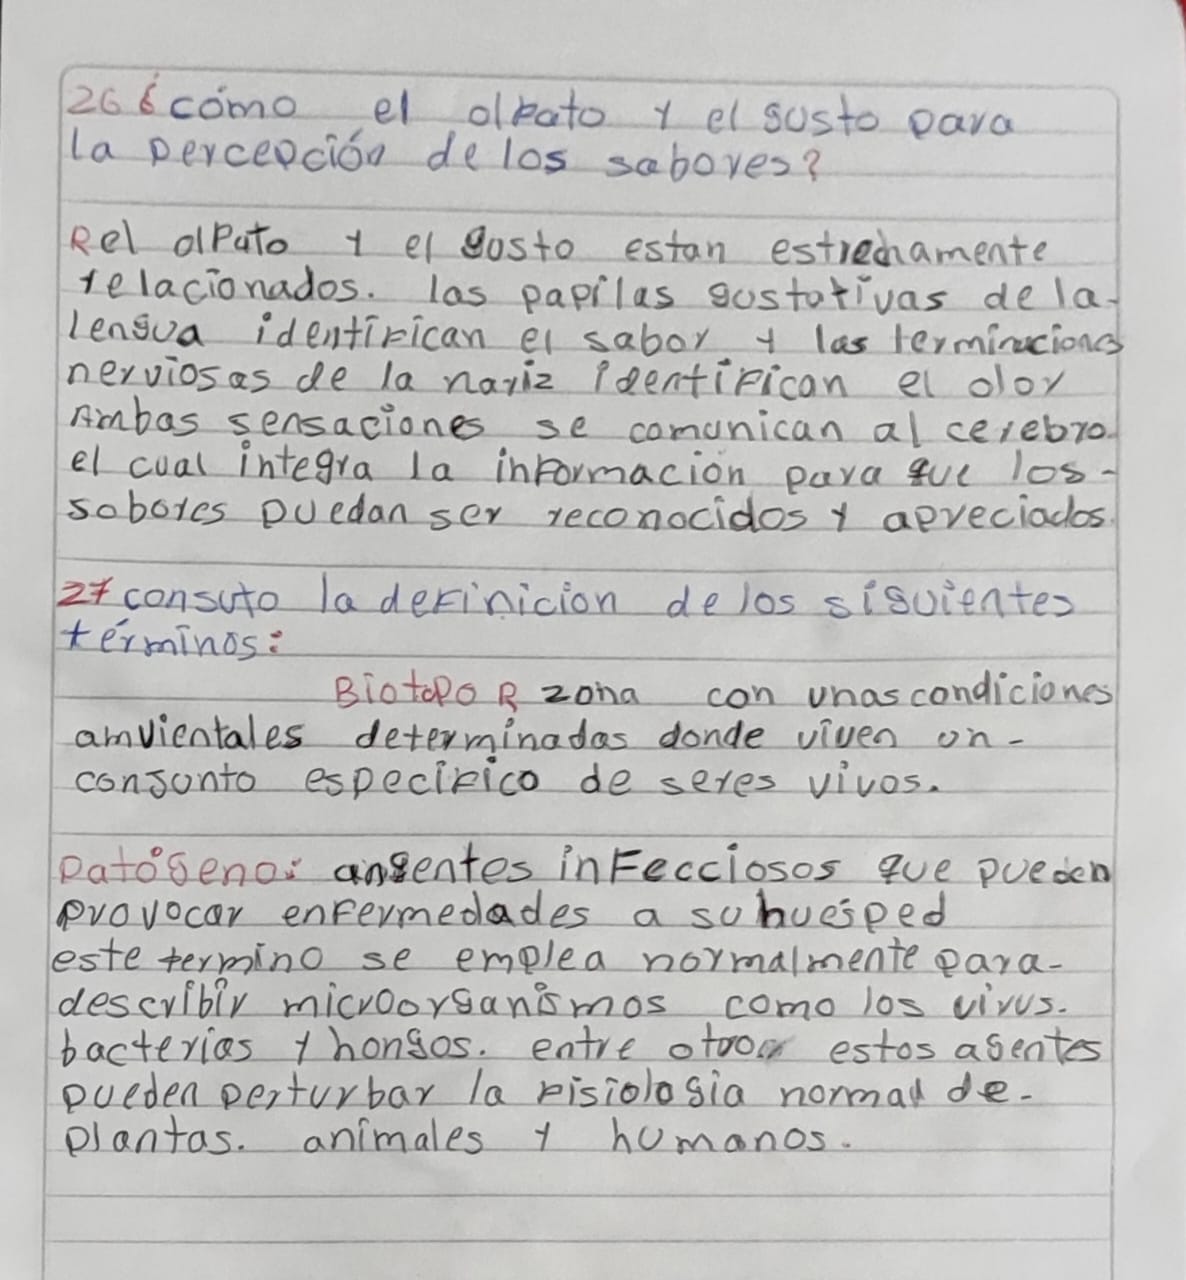 26 ¿cómo el olfato y el gusto para
la percepción de los sabores?
R el olfato y el gusto estan estrechamente
relacionados. las papilas gustotivas de la-
lengua identifican el sabor y las terminacions
nerviosas de la nariz identifican el olor
Ambas sensaciones se comunican al cerebro.
el cual integra la informacion para que los-
sabores puedan ser reconocidos y apreciados.
27 consuto la definicion de los siguientes
términos:
Biotopo R zona con unas condiciones
amvientales determinadas donde viven un-
conjunto especifico de seres vivos.
Patógeno: angentes infecciosos que pueden
provocar enfermedades a su huésped
este termino se emplea normalmente para-
describir microorganismos como los virus.
bacterias y hongos. entre otros estos agentes
pueden perturbar la fisiologia normal de-
plantas. animales y humanos.